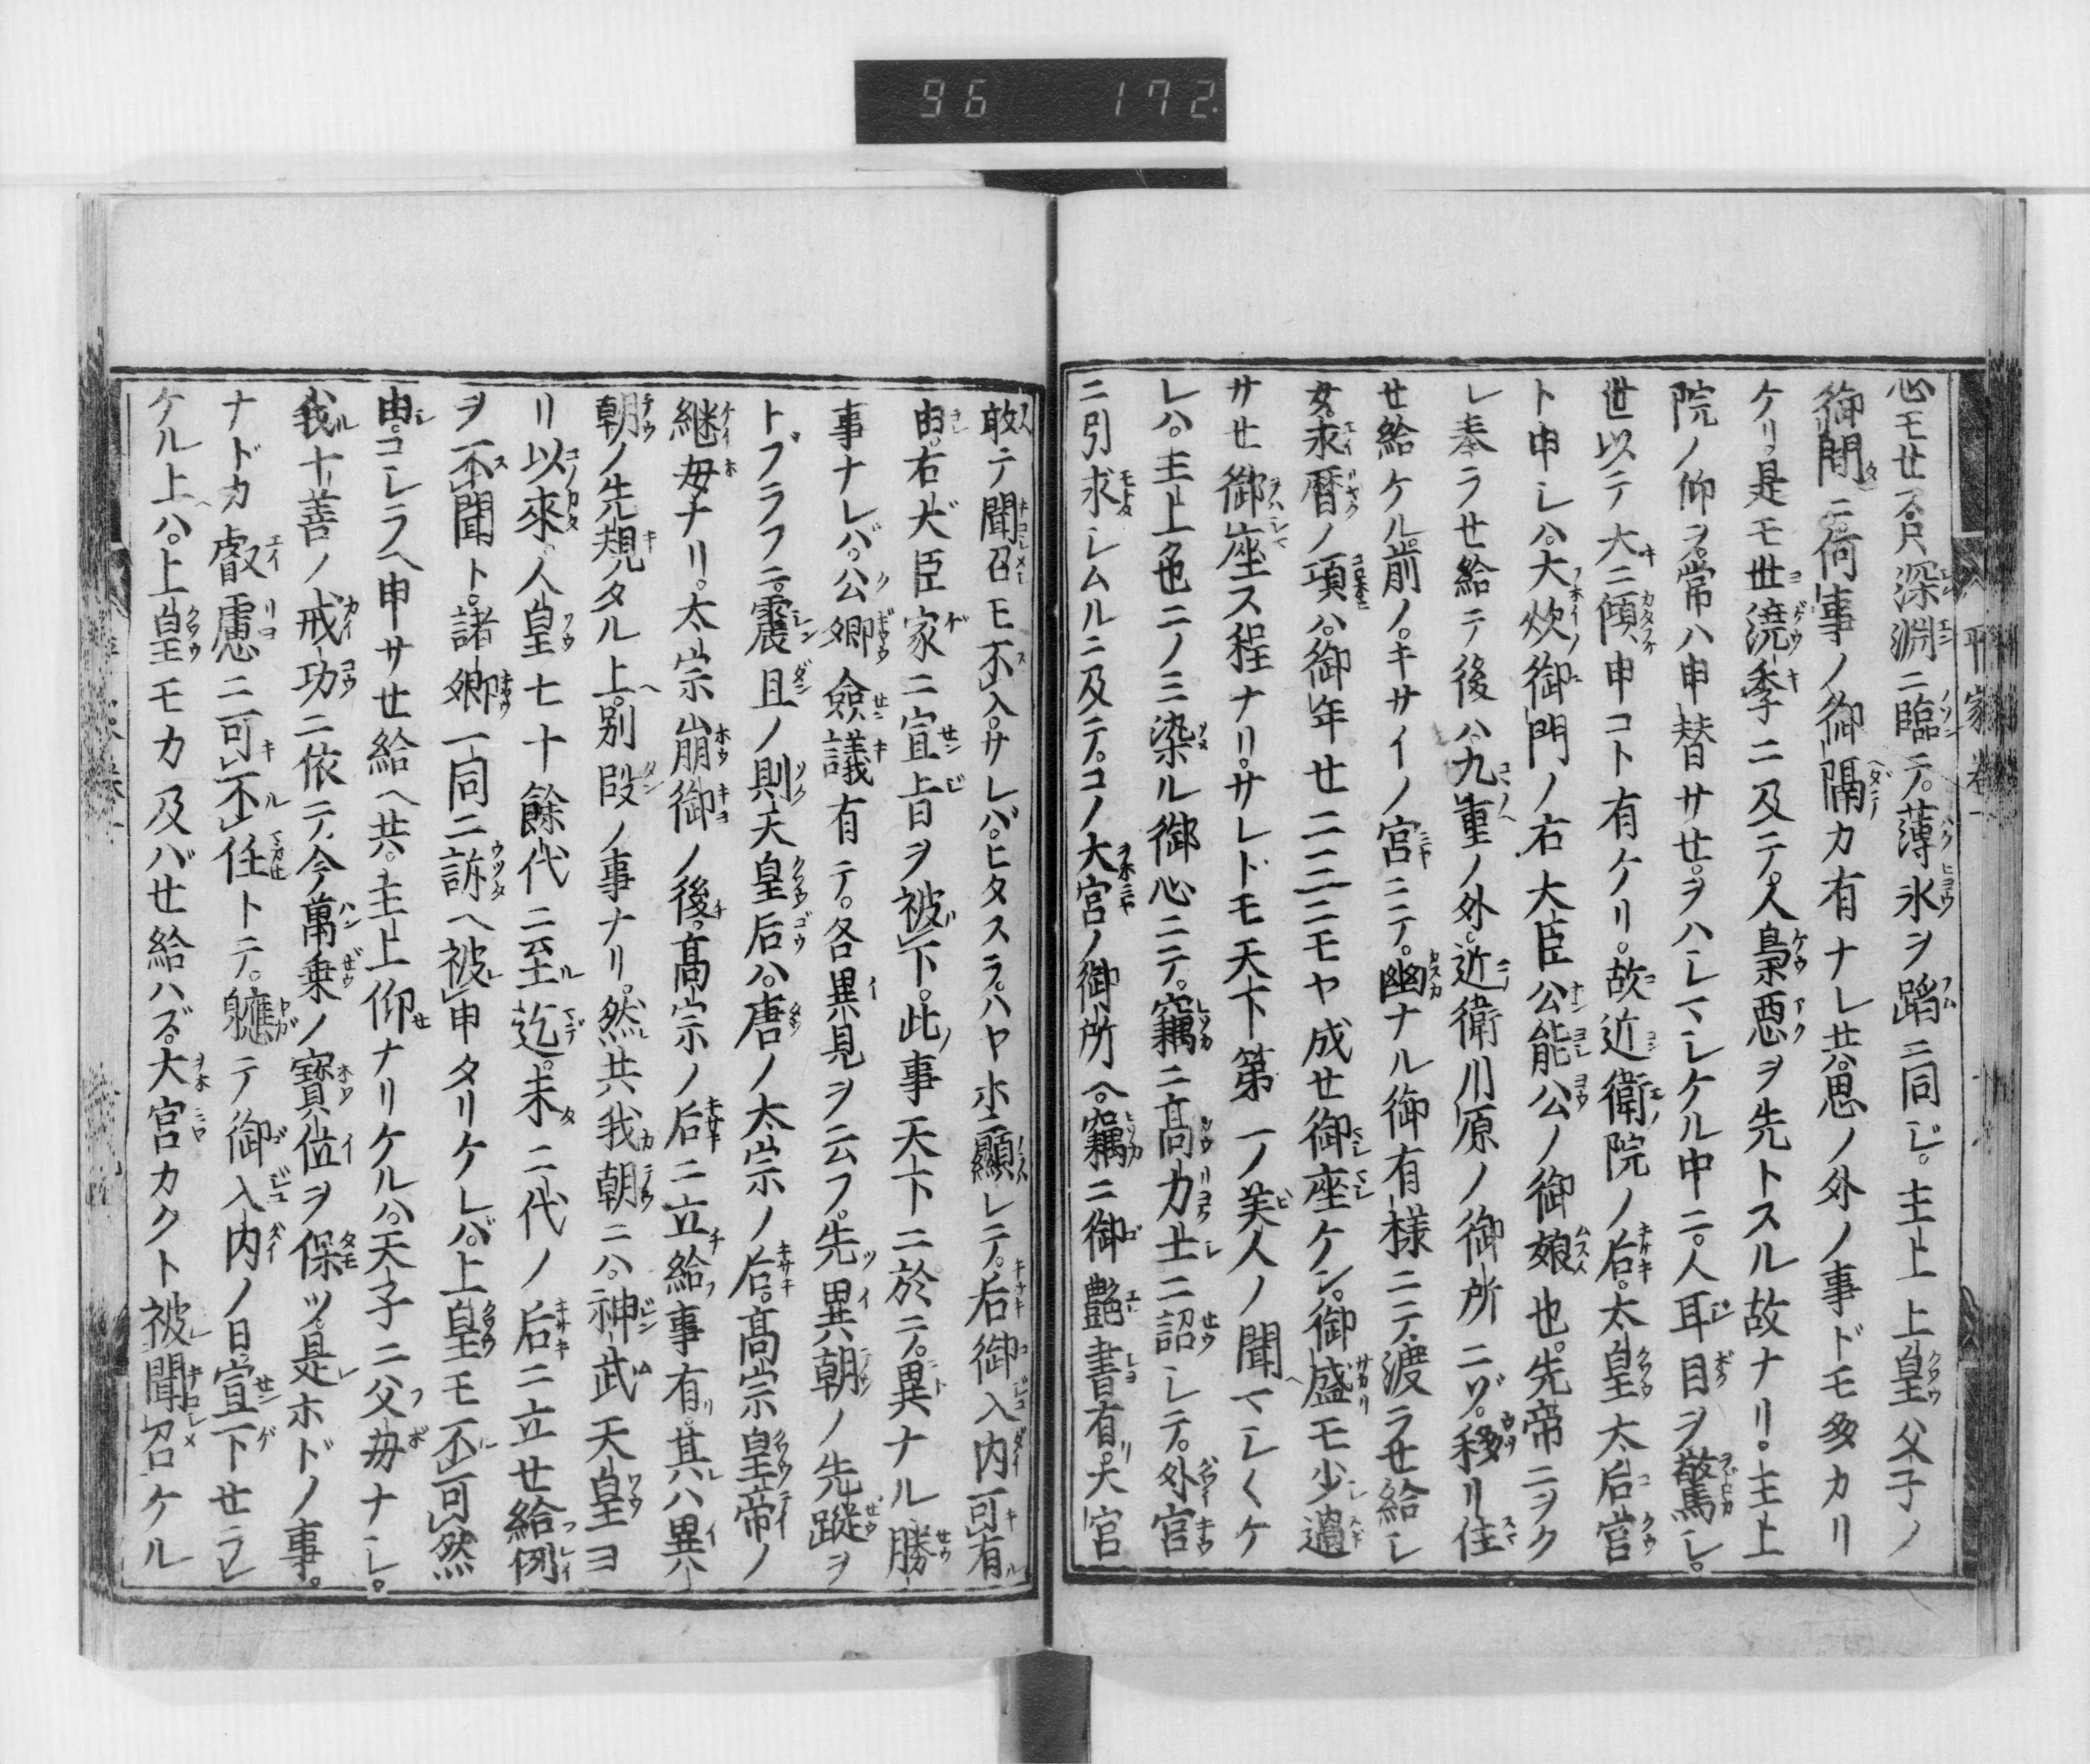 96 172.
心モせス只深淵ニ臨テ。薄氷ヲ蹈ニ同ジ。主上上皇父子ノ
御間ニ。何事ノ御隔カ有ナレ共。思ノ外ノ事ドモ多カリ
ケリ。是モ世澆季ニ及テ。人梟悪ヲ先トスル故ナリ。主上
院ノ仰ヲ。常ハ申替サせ。ヲハシマシケル中ニ。人耳目ヲ驚シ。
世以テ大ニ傾、申コト有ケリ。故近衛院ノ后。太皇太后宮
ト申シハ。大炊御門ノ右大臣公能公ノ御娘也。先帝ニヲク
レ奉ラせ給テ後ハ。九重ノ外。近衛川原ノ御所ニゾ。移リ住
せ給ケル。前ノ。キサイノ宮ニテ。幽ナル御有様ニテ。渡ラせ給シ
女。永暦ノ項ハ。御年廿二三ニモヤ成せ御座ケン。御盛モ少過
サせ御座ス程ナリ。サレドモ天下第一ノ美人ノ聞マシ〱ケ
レハ。主上色ニノミ染ル御心ニテ。竊ニ高力士ニ詔シテ。外宮
ニ引求シムルニ及テ。コノ大宮ノ御所ヘ。竊ニ御艶書有。大宮
敢テ聞召モ不入。サレバ。ヒタスラ。ハヤホニ顯レテ。后御入内可有
由。右大臣家ニ宣旨ヲ被下。此事天下ニ於テ。異ナル勝
事ナレバ。公卿僉議有テ。各異見ヲ云フ。先異朝ノ先蹤ヲ
トブラフニ。震旦ノ則天皇后ハ。唐ノ太宗ノ后。高宗皇帝ノ
継母ナリ。太宗崩御ノ後。高宗ノ后ニ立給事有。其ハ異
朝ノ先規タル上。別段ノ事ナリ。然共我朝ニハ。神武天皇ヨ
リ以來。人皇七十餘代ニ至迄。未二代ノ后ニ立せ給例
ヲ不聞ト。諸卿一同ニ訴ヘ被申タリケレバ。上皇モ不可然
由。コシラヘ申サせ給ヘ共。主上仰ナリケルハ。天子ニ父母ナシ。
我十善ノ戒功ニ依テ。今萬乗ノ寳位ヲ保ツ。是ホドノ事。
ナドカ叡慮ニ可不任トテ。軈テ御入内ノ日。宣下せラレ
ケル上ハ。上皇モカ及バせ給ハズ。大宮カクト被聞召ケル